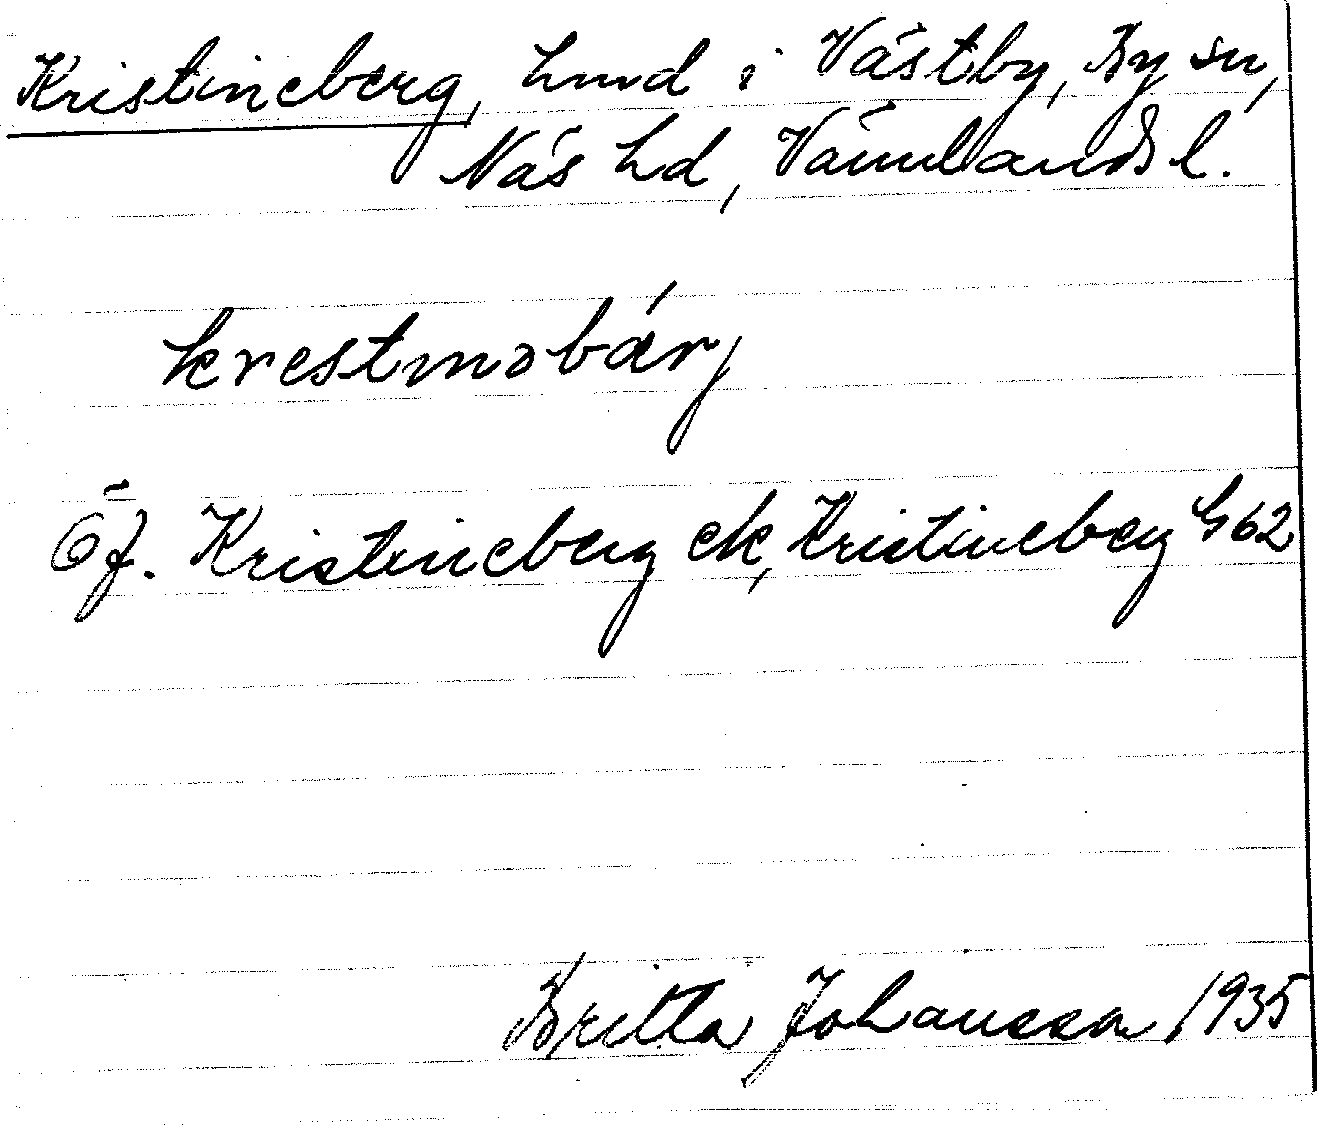 Kristineberg, hmd i Västby, By sn,
Näs hd, Värmlands l.
krestinəbä́rj
Öf. Kristineberg ek, Kristineberg G62
Britta Johansson 1935